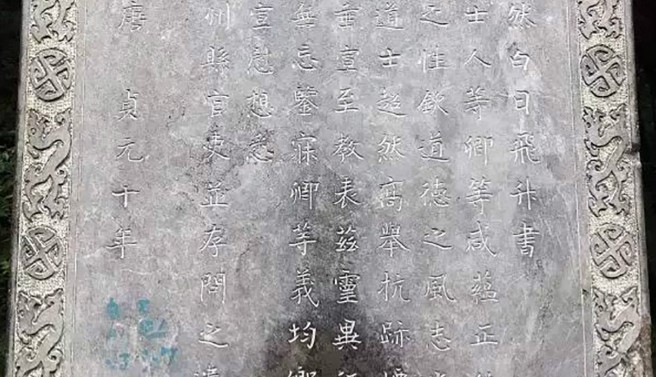 然白日飛升書
士人等卿等咸蘊正
之性欽道德之風志
道士超然高舉抗跡煙
垂宣至教表茲靈異
無忘鑒寐卿等義均鄉
宣慰想悉
州縣官吏並存問之遣
唐 貞元十年